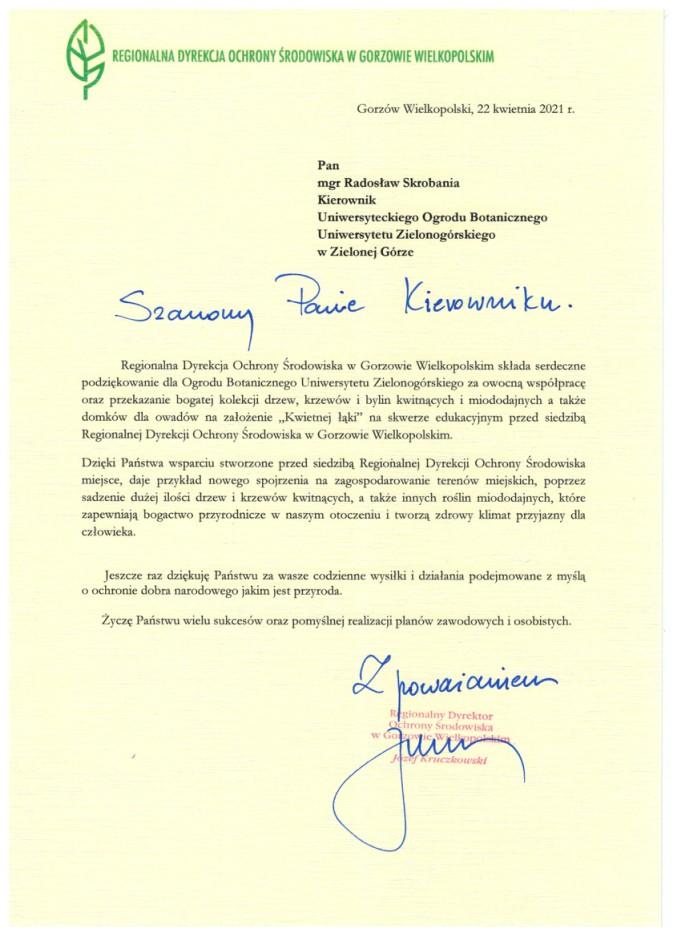 REGIONALNA DYREKCJA OCHRONY ŚRODOWISKA W GORZOWIE WIELKOPOLSKIM
Gorzów Wielkopolski, 22 kwietnia 2021 r.
Pan
mgr Radosław Skrobania
Kierownik
Uniwersyteckiego Ogrodu Botanicznego
Uniwersytetu Zielonogórskiego
w Zielonej Górze
Szanowny Panie Kierowniku.
Regionalna Dyrekcja Ochrony Środowiska w Gorzowie Wielkopolskim składa serdeczne
podziękowanie dla Ogrodu Botanicznego Uniwersytetu Zielonogórskiego za owocną współpracę
oraz przekazanie bogatej kolekcji drzew, krzewów i bylin kwitnących i miododajnych a także
domków dla owadów na założenie „Kwietnej łąki” na skwerze edukacyjnym przed siedzibą
Regionalnej Dyrekcji Ochrony Środowiska w Gorzowie Wielkopolskim.
Dzięki Państwa wsparciu stworzone przed siedzibą Regionalnej Dyrekcji Ochrony Środowiska
miejsce, daje przykład nowego spojrzenia na zagospodarowanie terenów miejskich, poprzez
sadzenie dużej ilości drzew i krzewów kwitnących, a także innych roślin miododajnych, które
zapewniają bogactwo przyrodnicze w naszym otoczeniu i tworzą zdrowy klimat przyjazny dla
człowieka.
Jeszcze raz dziękuję Państwu za wasze codzienne wysiłki i działania podejmowane z myślą
o ochronie dobra narodowego jakim jest przyroda.
Życzę Państwu wielu sukcesów oraz pomyślnej realizacji planów zawodowych i osobistych.
Z poważaniem
Regionalny Dyrektor
Ochrony Środowiska
w Gorzowie Wielkopolskim
Józef Kruczkowski